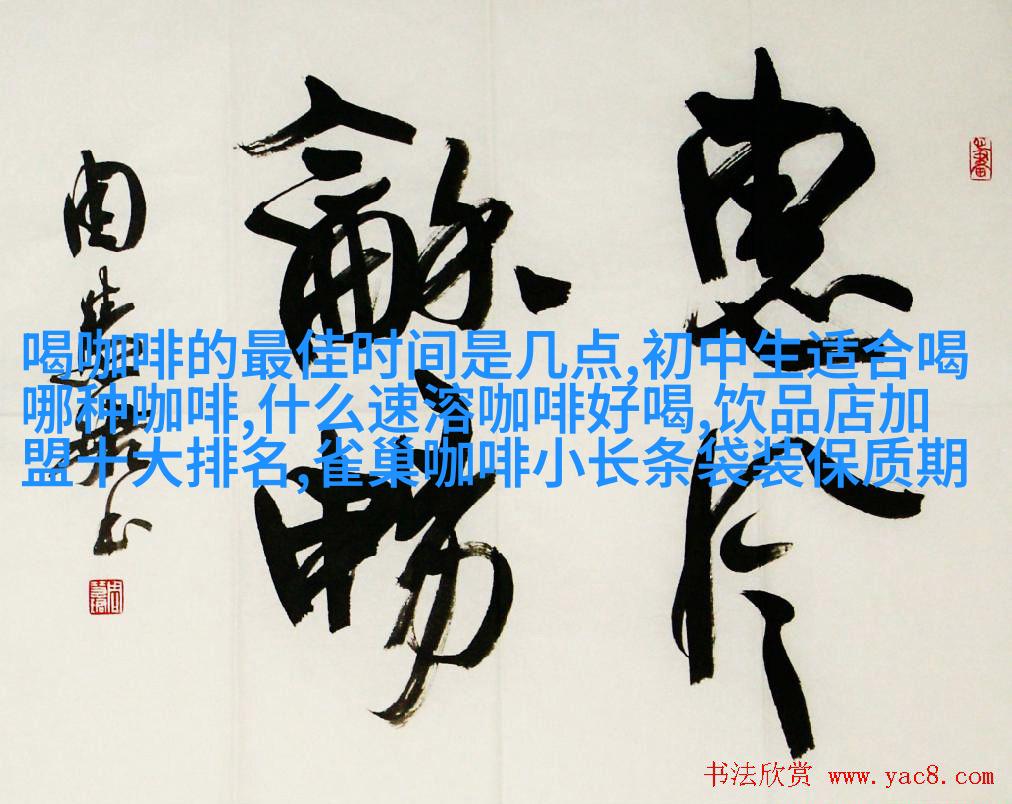 惠风
龢畅
喝咖啡的最佳时间是几点,初中生适合喝
哪种咖啡,什么速溶咖啡好喝,饮品店加
盟十大排名,雀巢咖啡小长条袋装保质期
书法欣赏 www.yac8.com